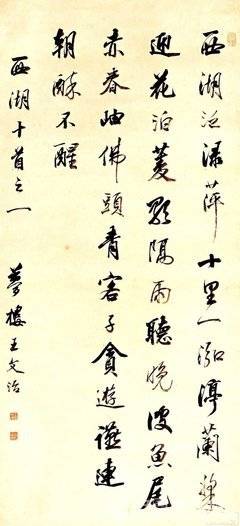 西湖泛淥萍十里一泓渟蘭槳
迎花泊菱歌隔雨聽晚波魚尾
赤春岫佛頭青客子貪遊讌連
朝醉不醒
西湖十首之一
夢樓王文治